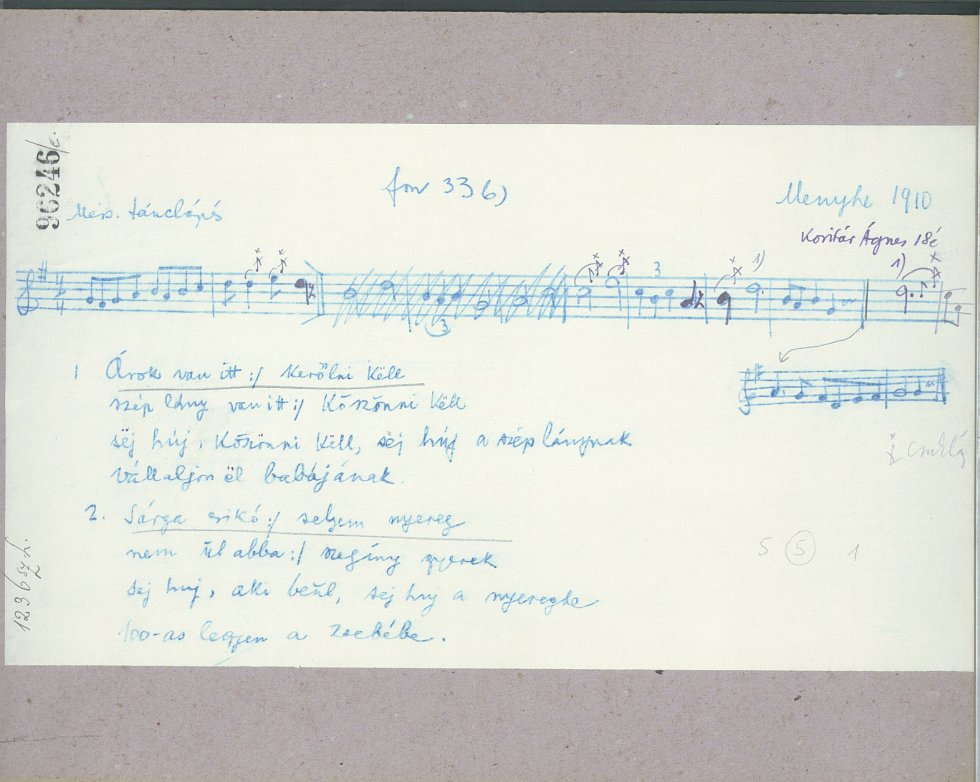 96246/c.
fon 33 b)
Menyhe 1910
tánclépés
Koritár Ágnes 18é
1)
1)
3
3
1 Árok van itt :/ Kerőlni Këll
szép lány van itt :/ Köszönni Këll
sëj húj, Köszönni Këll, sëj húj a szép lánynak
Vállaljon ël babájának.
2. Sárga csikó :/ selyem nyereg
nem ül abba :/ szegíny gyerek
sej huj, aki beűl, sej huj a nyeregbe
100-as legyen a zsebébe.
S 5 1
1236